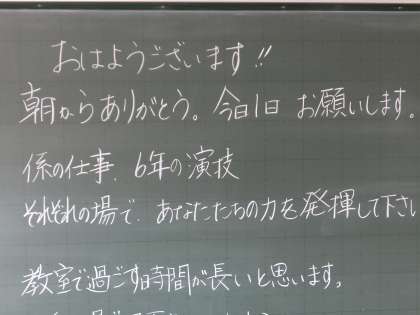 おはようございます!!
朝からありがとう。今日1日 お願いします。
係の仕事、6年の演技
それぞれの場で、あなたたちの力を発揮して下さい
教室で過ごす時間が長いと思います。